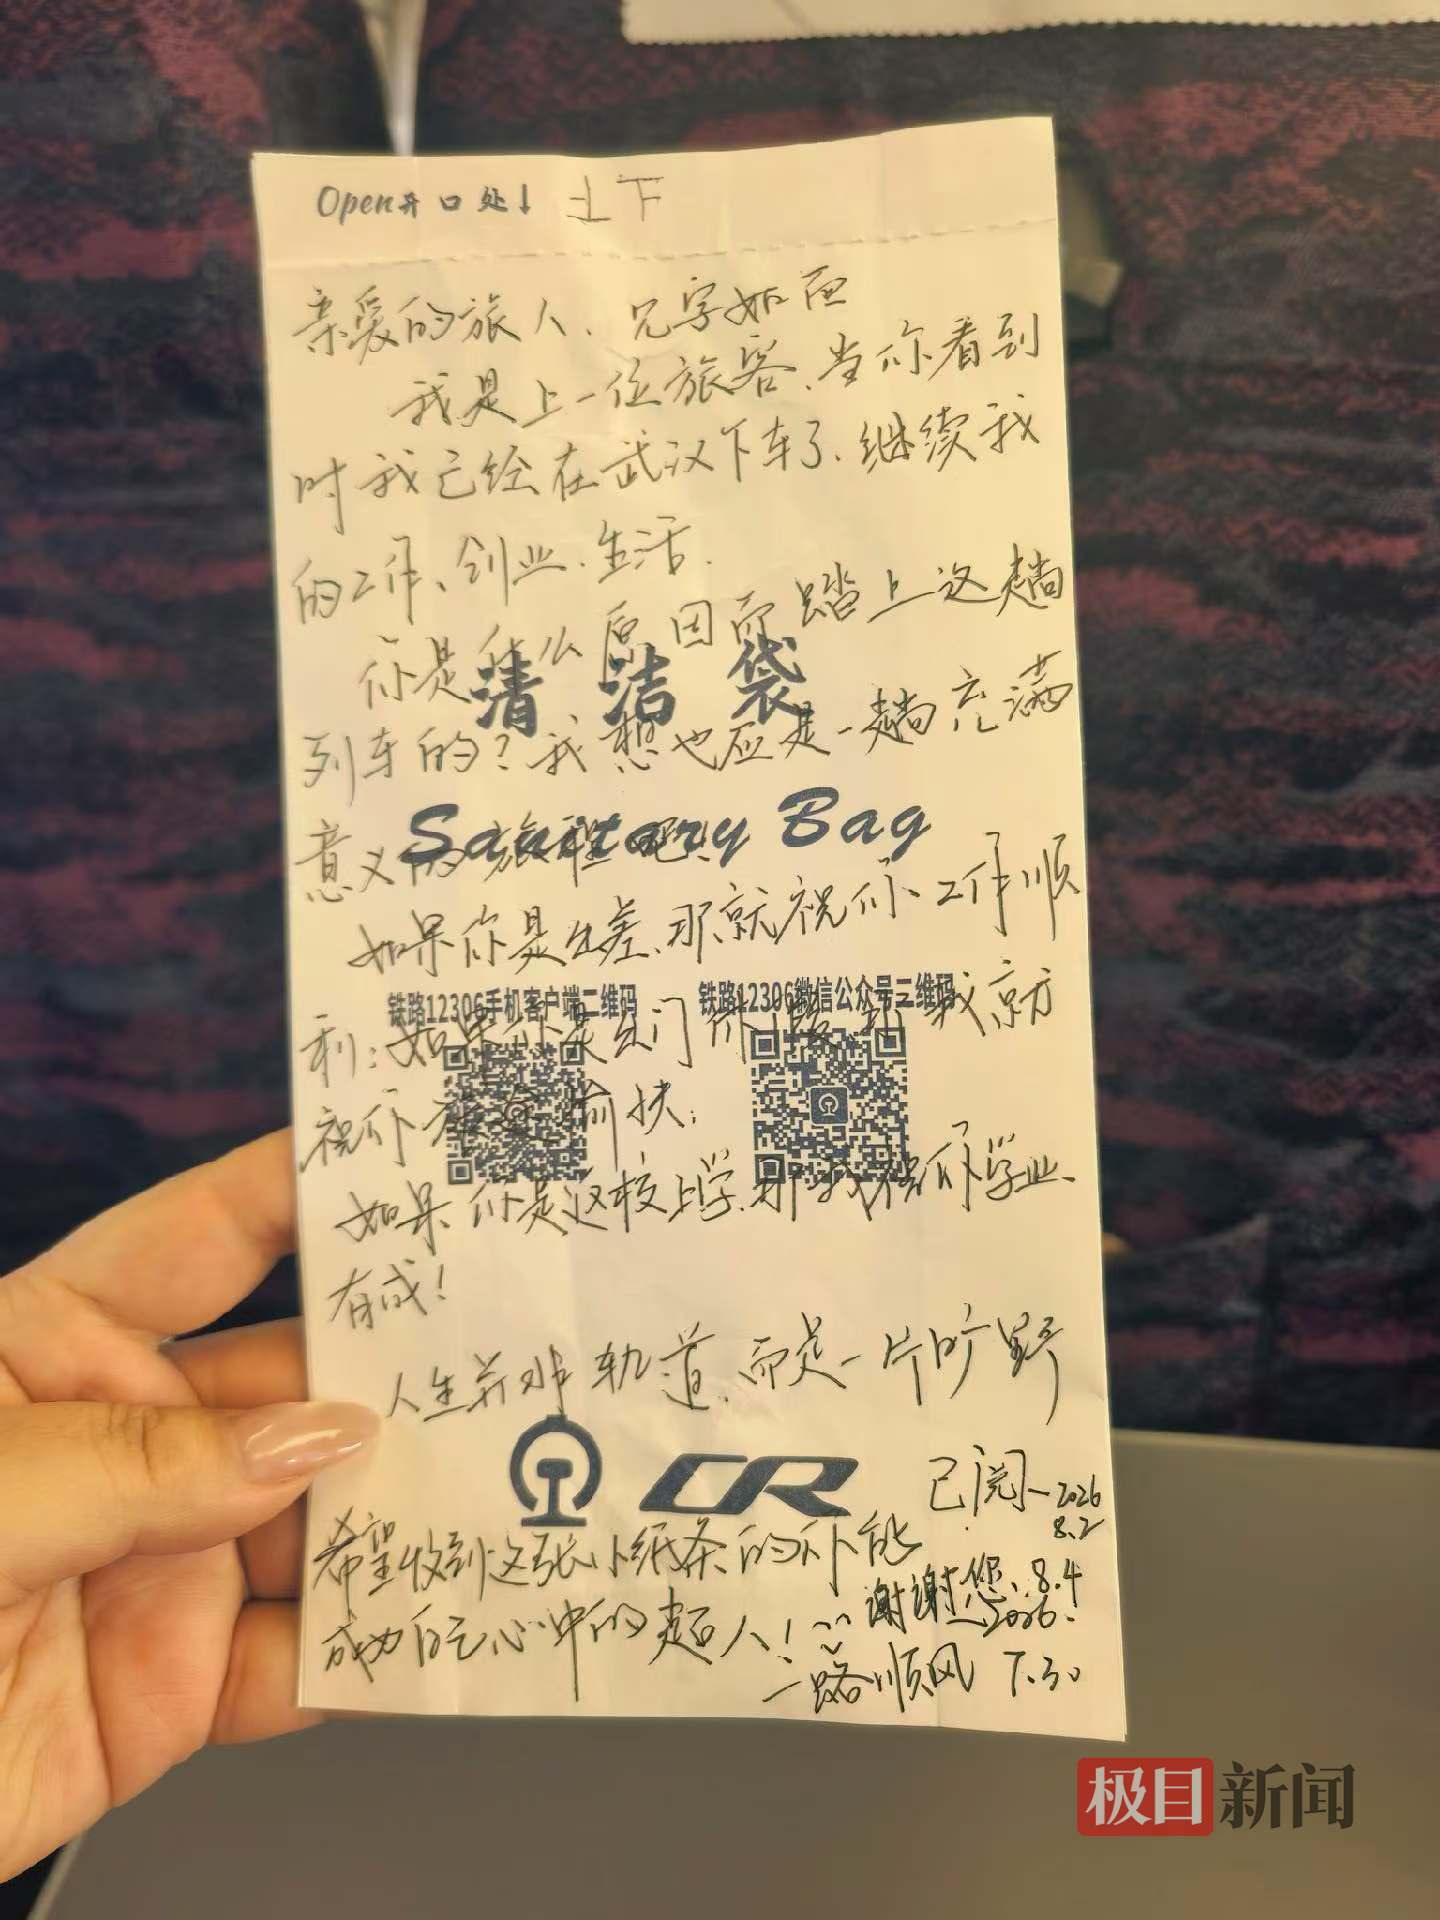 Open开口处↓ 上下
亲爱的旅人、见字如面
我是上一位旅客、当你看到
时我已经在武汉下车了、继续我
的工作、创业、生活.
你是什么原因而踏上这趟
清洁袋
列车的?我想也应是一趟充满
Sanitary Bag
意义的旅程吧!
如果你是出差、那就祝你工作顺
铁路12306手机客户端二维码 铁路12306微信公众号二维码
利;如果你是出门
祝你旅途愉快;
如果你是返校上学、那我祝你学业
有成!
人生并非轨道、而是一片旷野
CR
已阅-2026
8.2
希望收到这张小纸条的你能
谢谢您、8.4
成为自己心中的超人!
2026.
一路顺风 7.30
极目新闻